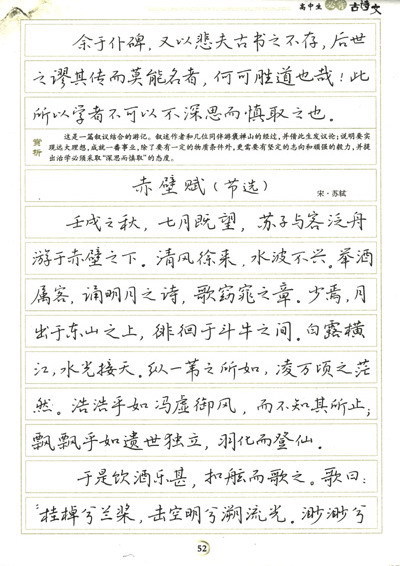 高中生必背古诗文
余于仆碑,又以悲夫古书之不存,后世
之谬其传而莫能名者,何可胜道也哉!此
所以学者不可以不深思而慎取之也.
赏析
这是一篇叙议结合的游记。叙述作者和几位同伴游褒禅山的经过,并借此生发议论;说明要实
现远大理想,成就一番事业,除了要有一定的物质条件外,更需要有坚定的志向和顽强的毅力,并提
出治学必须采取“深思而慎取”的态度。
赤壁赋(节选)
宋·苏轼
壬戌之秋,七月既望,苏子与客泛舟
游于赤壁之下.清风徐来,水波不兴.举酒
属客,诵明月之诗,歌窈窕之章.少焉,月
出于东山之上,徘徊于斗牛之间.白露横
江,水光接天.纵一苇之所如,凌万顷之茫
然。浩浩乎如冯虚御风,而不知其所止;
飘飘乎如遗世独立,羽化而登仙.
于是饮酒乐甚,扣舷而歌之。歌曰:
“桂棹兮兰桨,击空明兮溯流光.渺渺兮
52